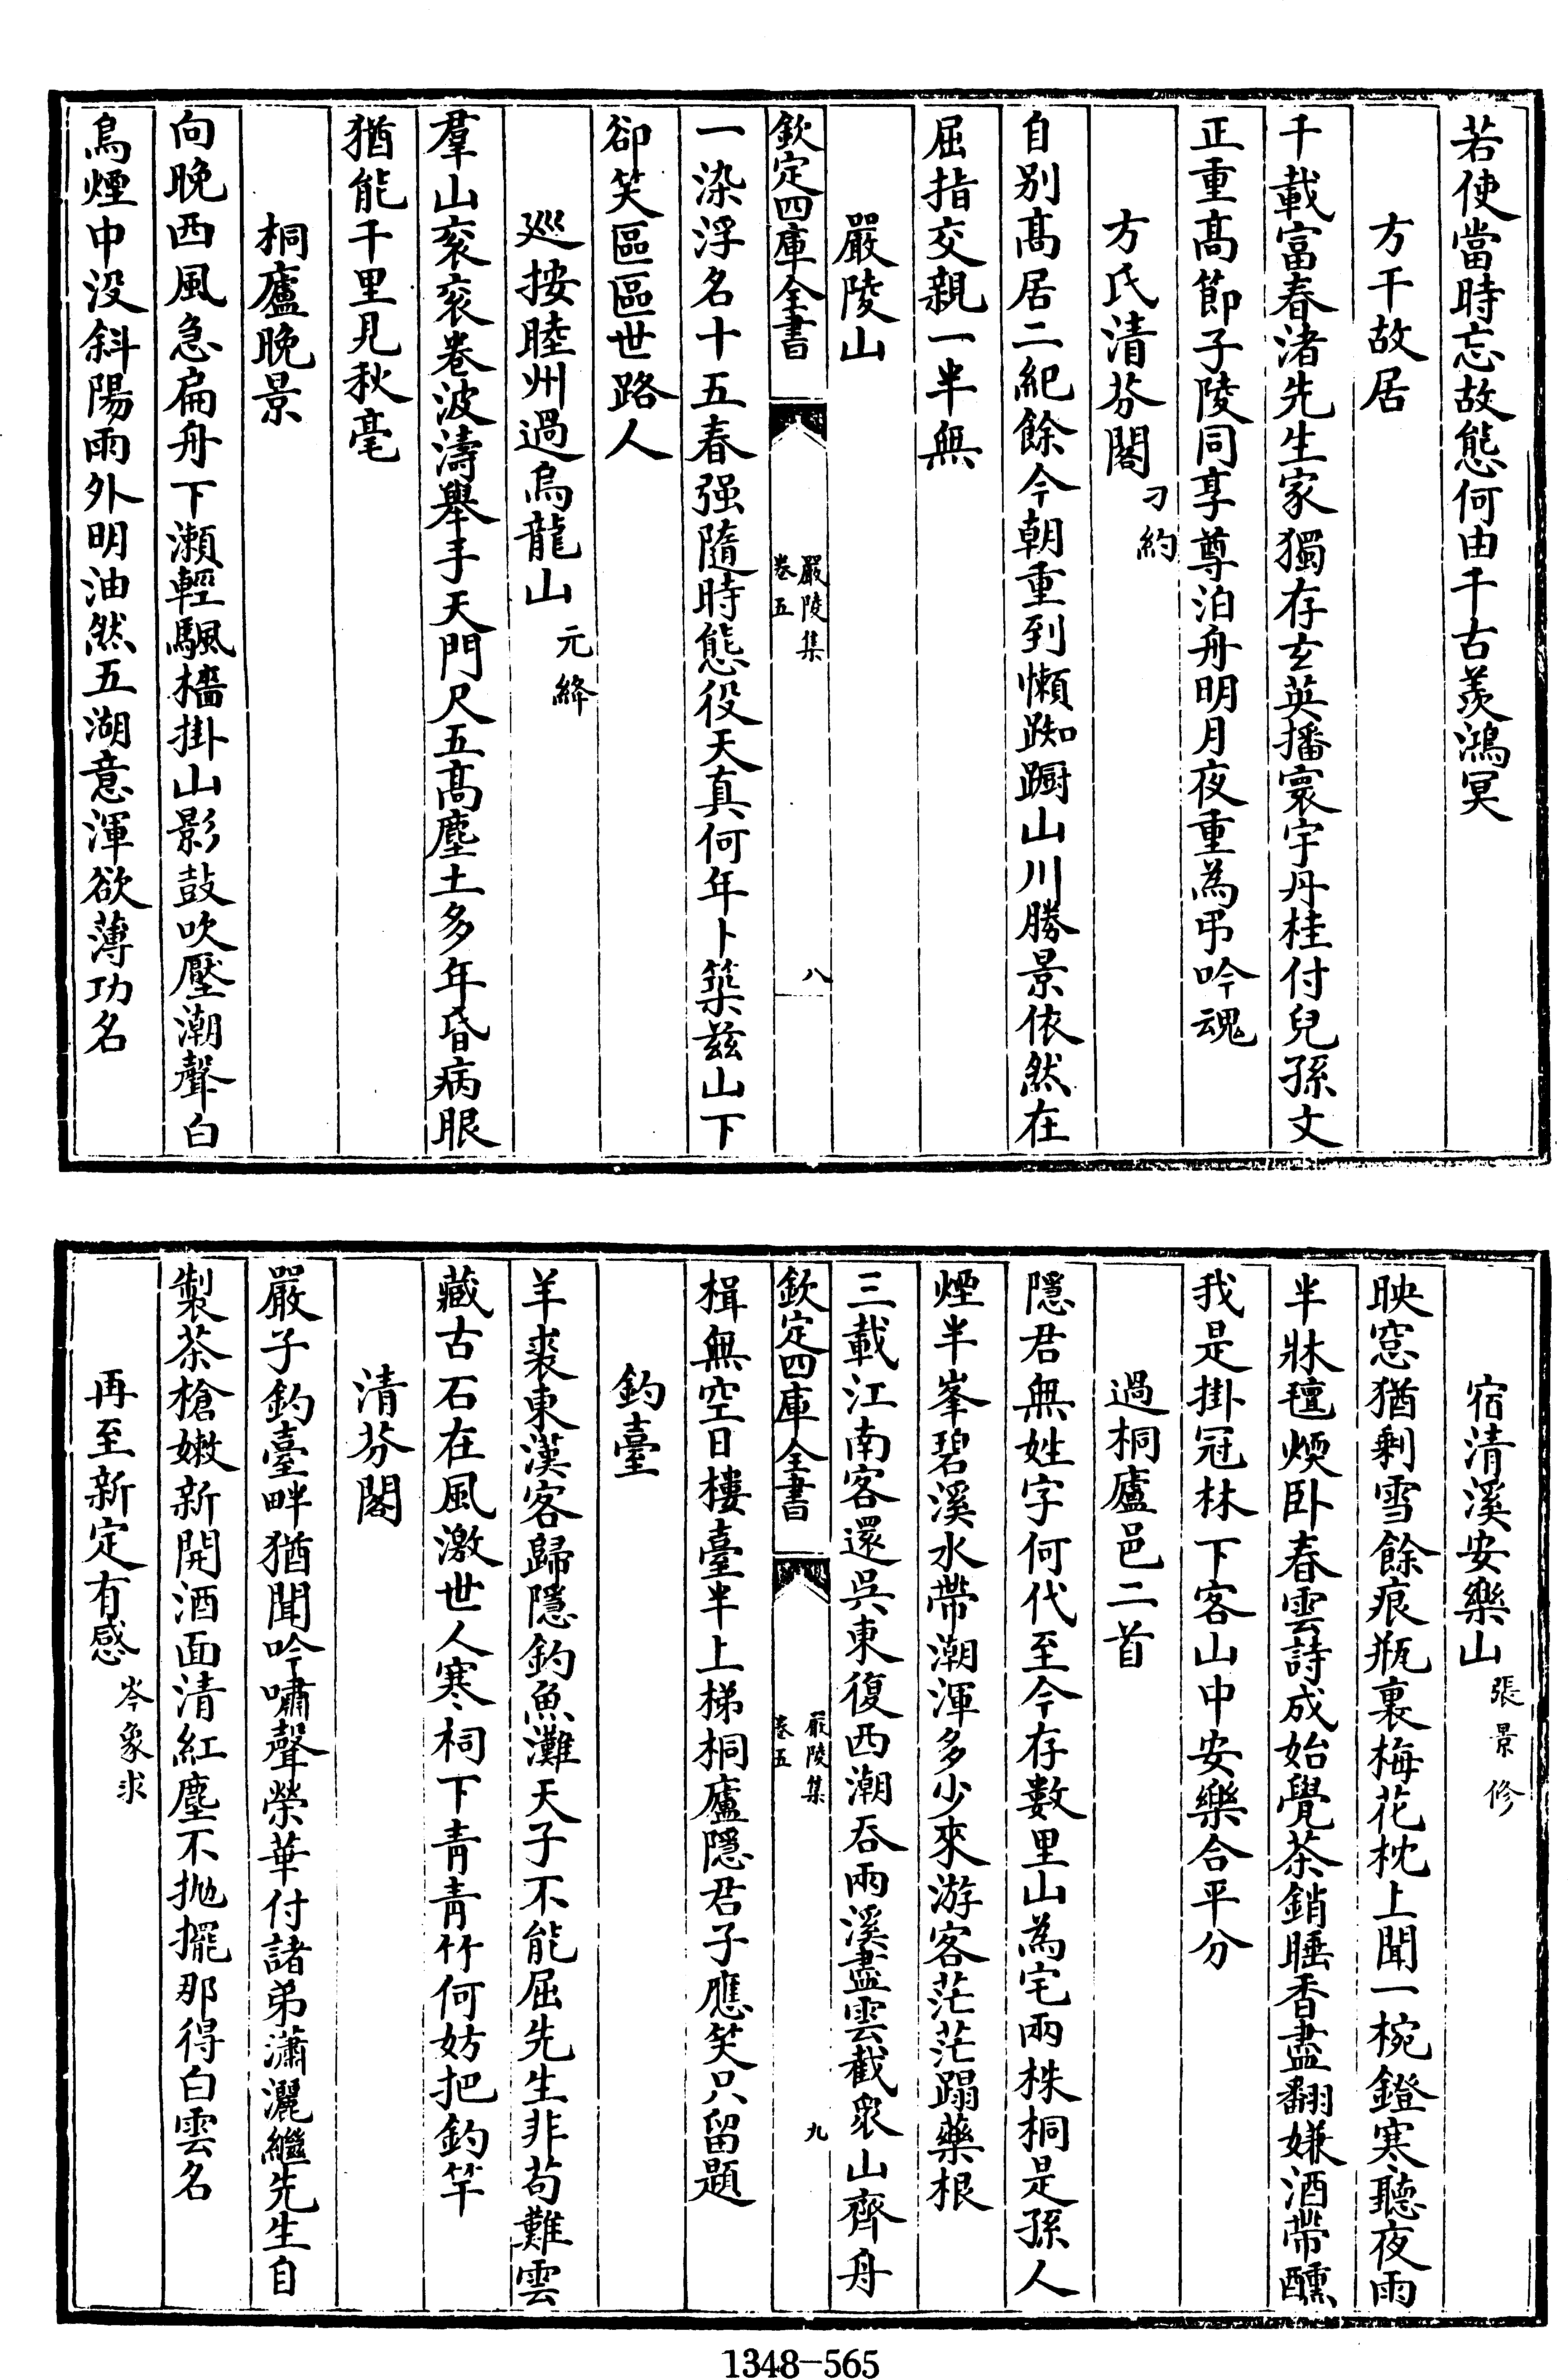 若使當時忘故態何由千古羨鴻冥
方干故居
千載富春渚先生家獨存玄英播寰宇丹桂付兒孫文
正重髙節子陵同享尊泊舟明月夜重為弔吟魂
方氏清芬閣 刁約
自别髙居二紀餘今朝重到懶踟蹰山川勝景依然在
屈指交親一半無
嚴陵山
欽定四庫全書 嚴陵集 卷五 八
一染浮名十五春强隨時態役天真何年卜築兹山下
卻笑區區世路人
巡按睦州過烏龍山 元絳
羣山衮衮卷波濤舉手天門尺五髙塵土多年昏病眼
猶能千里見秋毫
桐廬晚景
向晚西風急扁舟下瀨輕颿檣掛山影鼓吹壓潮聲白
鳥煙中没斜陽雨外明油然五湖意渾欲薄功名
宿清溪安樂山 張景修
映窓猶剩雪餘痕瓶裏梅花枕上聞一椀鐙寒聽夜雨
半牀氊煗卧春雲詩成始覺茶銷睡香盡翻嫌酒帶醺
我是掛冠林下客山中安樂合平分
過桐廬邑二首
隱君無姓字何代至今存數里山為宅兩株桐是孫人
煙半峯碧溪水帶潮渾多少來游客茫茫蹋藥根
三載江南客還吳東復西潮吞兩溪盡雲截衆山齊舟
欽定四庫全書 嚴陵集 卷五 九
楫無空日樓臺半上梯桐廬隱君子應笑只留題
釣臺
羊裘東漢客歸隱釣魚灘天子不能屈先生非苟難雲
藏古石在風激世人寒祠下青青竹何妨把釣竿
清芬閣
嚴子釣臺畔猶聞吟嘯聲榮華付諸弟瀟灑繼先生自
製茶槍嫩新開酒面清紅塵不抛擺那得白雲名
再至新定有感 岑象求
1348-565